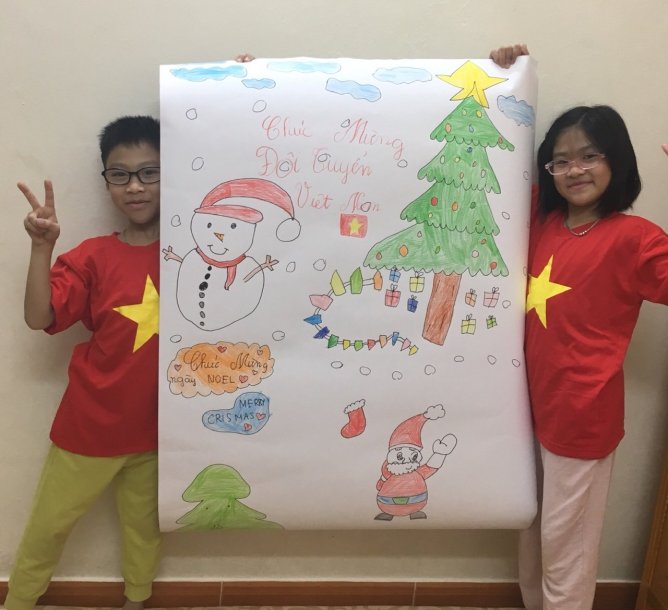 Chúc Mừng
Đội Tuyển
Việt Nam
Chúc Mừng
ngày NOEL
MERRY
CRISMAS